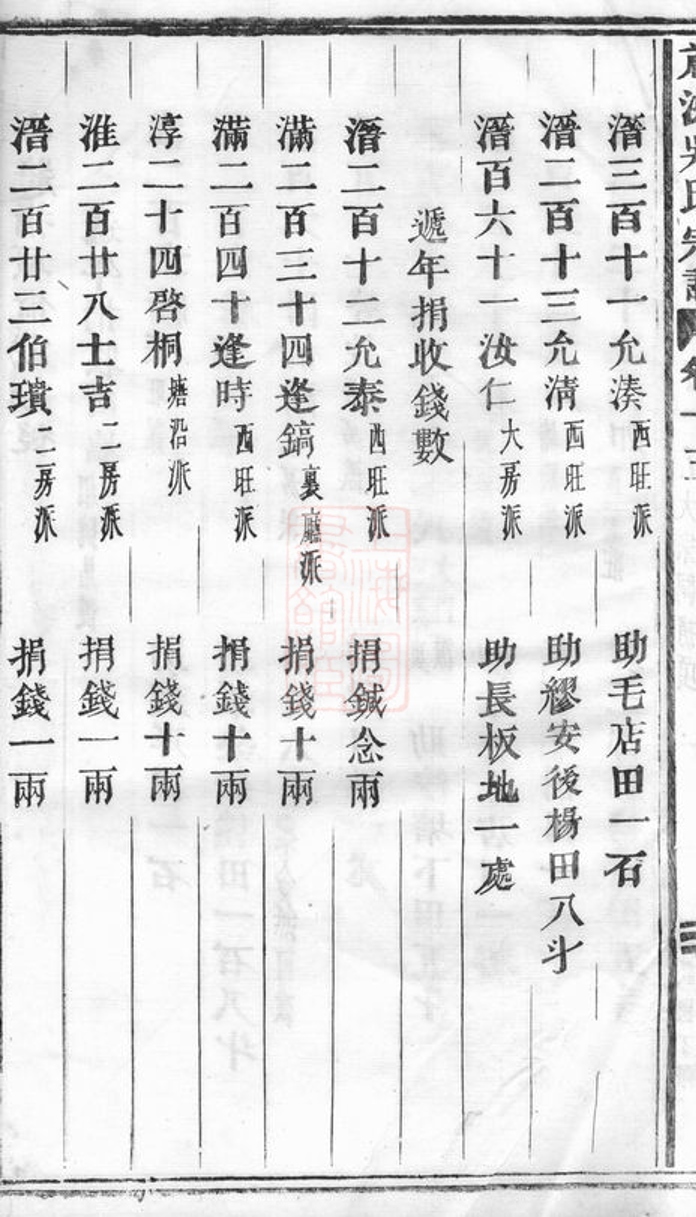 吳氏宗譜
潛三百十一允湊西旺派 助毛店田一石
潛二百十三允清西旺派 助繆安後楊田八斗
潛百六十一汝仁大房派 助長板地一處
遞年捐收錢數
潛二百十二允泰西旺派 捐鍼念兩
滿二百三十四逢鎬裏廳派 捐錢十兩
滿二百四十逢時西旺派 捐錢十兩
淳二十四啓桐塘沿派 捐錢十兩
淮二百廿八士吉二房派 捐錢一兩
潛二百廿三伯璸二房派 捐錢一兩